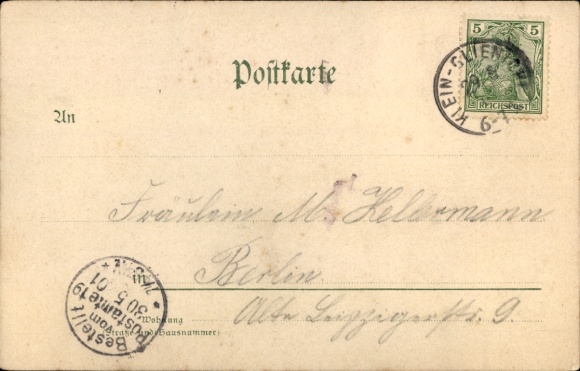 Postkarte
5 5
REICHSPOST
KLEIN-GLIENICKE
6-7
An
Fräulein M. Kellermann
in Berlin.
Wohnung
(Straße und Hausnummer)
Alte Leipzigerstr. 9.
Bestellt
vom
Postamte 19
30.5.01